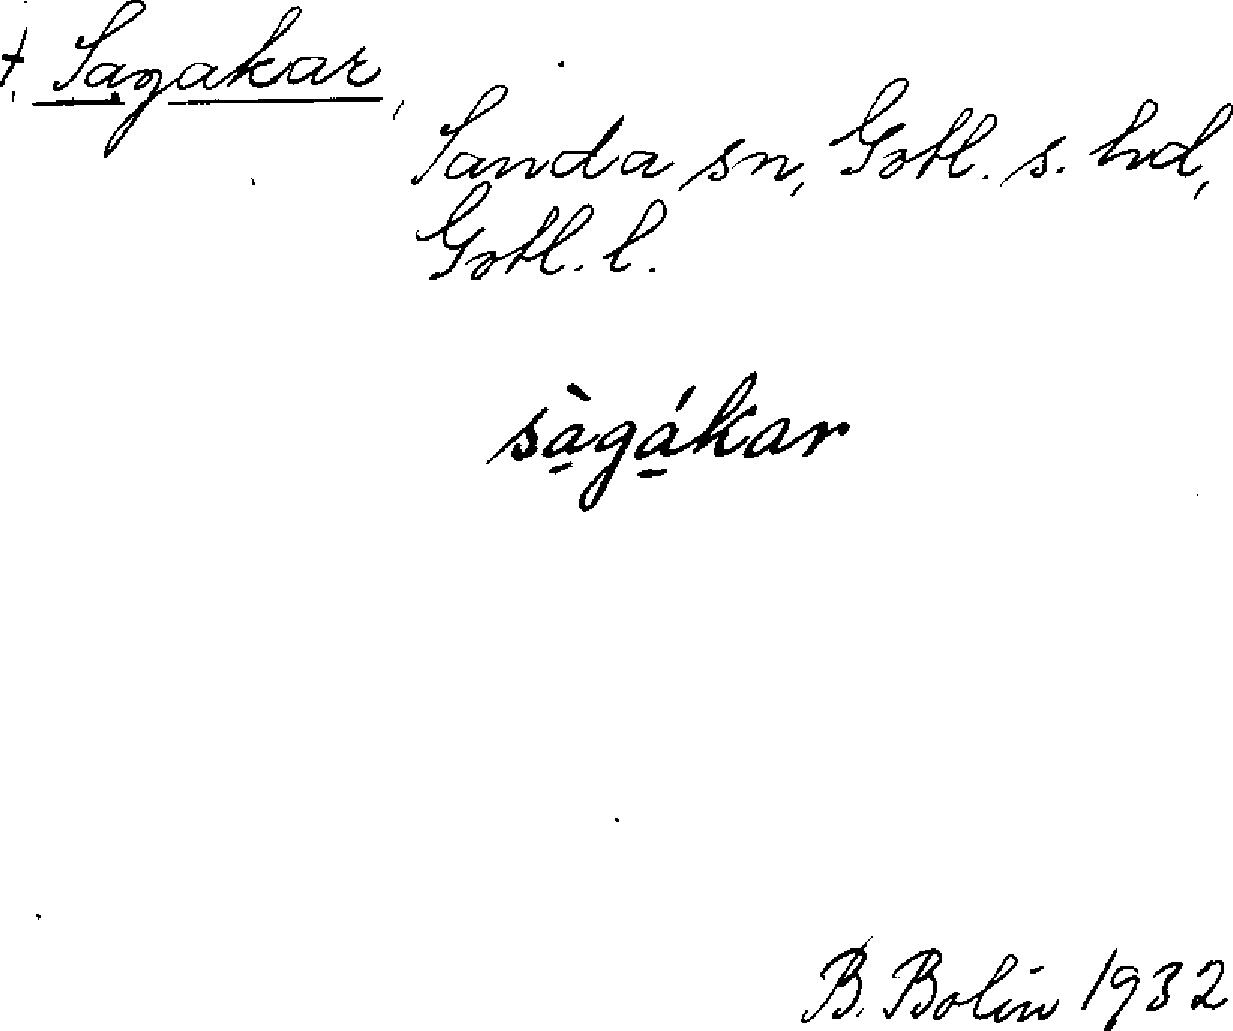 t. Sagakar,
Sanda sn, Gotl. s. hd,
Gotl. l.
sàgákar
B. Bolin 1932